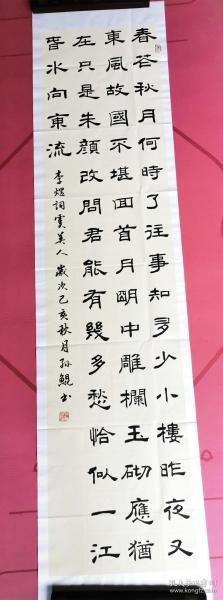 春花秋月何時了往事知多少小樓昨夜又
東風故國不堪回首月明中雕欄玉砌應猶
在只是朱顏改問君能有幾多愁恰似一江
春水向東流
李煜詞虞美人 歲次己亥秋月孙鲲书